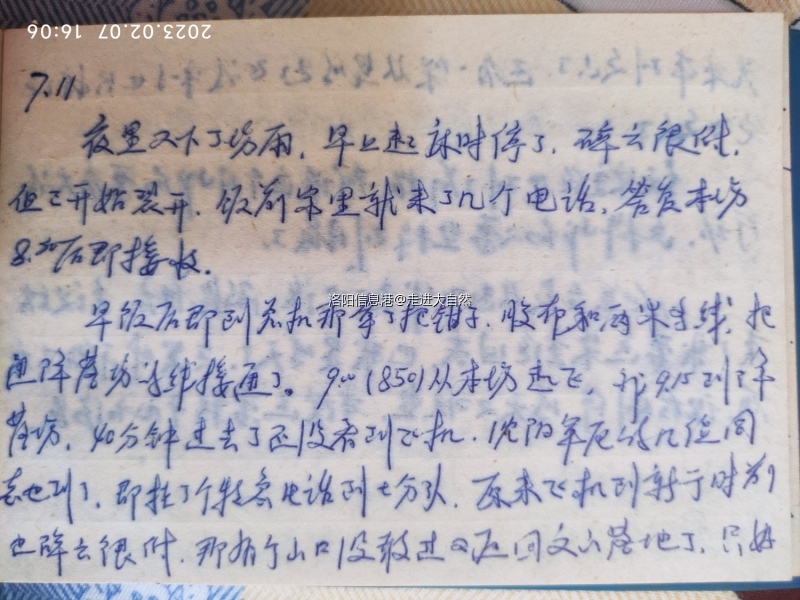 2023.02.07 16:06
7.11
夜里又下了场雨，早上起床时停了，碎云很低，
但已开始裂开，饭前家里就来了几个电话，答复本场
8.30后即接收。
洛阳信息港@走进大自然
早饭后即到总机那拿了把钳子，胶布和两米多线，把
通降落场导线接通了。9.00（850）从本场起飞，9.15到降
落场，40分钟过去了还没看到飞机，沈阳军区的几位同
志也到了，即挂了个特急电话到七分队，原来飞机到新 时
也碎云很低，那有个山口没敢过又返回文山落地了，只好